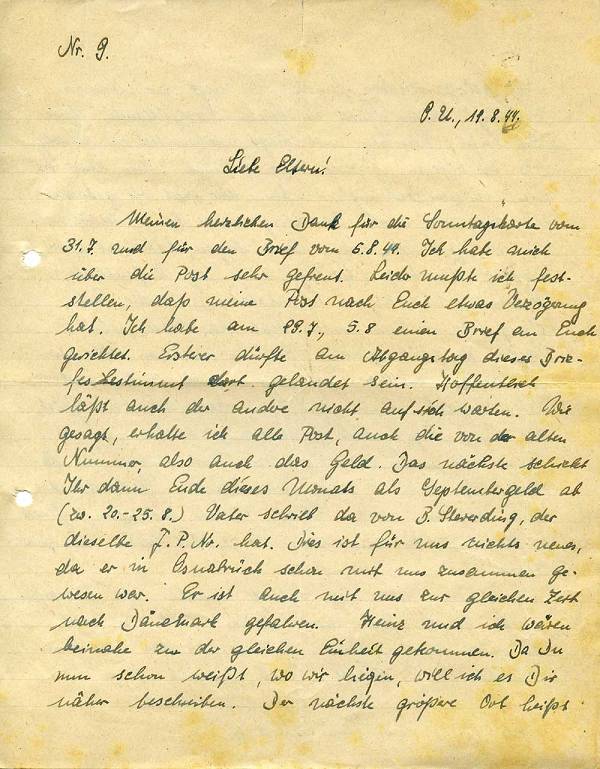 Nr. 9.
O. U., 19.8.44.
Liebe Eltern!
Meinen herzlichen Dank für die Sonntagskarte vom
31.7. und für den Brief vom 6.8.44. Ich habe mich
über die Post sehr gefreut. Leider mußte ich fest-
stellen, daß meine Post nach Euch etwas Verzögerung
hat. Ich habe am 29.7., 5.8 einen Brief an Euch
gerichtet. Ersterer dürfte am Abgangstag dieses Brie-
fes bestimmt dort gelandet sein. Hoffentlich
läßt auch der andre nicht auf sich warten. Wie
gesagt, erhalte ich alle Post, auch die von der alten
Nummer, also auch das Geld. Das nächste schickt
Ihr dann Ende dieses Monats als Septembergeld ab
(zw. 20.-25.8.) Vater schrieb da von B. Steverding, der
dieselbe F. P. Nr. hat. Dies ist für uns nichts neues,
da er in Osnabrück schon mit uns zusammen ge-
wesen war. Er ist auch mit uns zur gleichen Zeit
nach Dänemark gefahren. Heinz und ich wären
beinahe zu der gleichen Einheit gekommen. Da Du
nun schon weißt, wo wir liegen, will ich es Dir
näher beschreiben. Der nächste größere Ort heißt